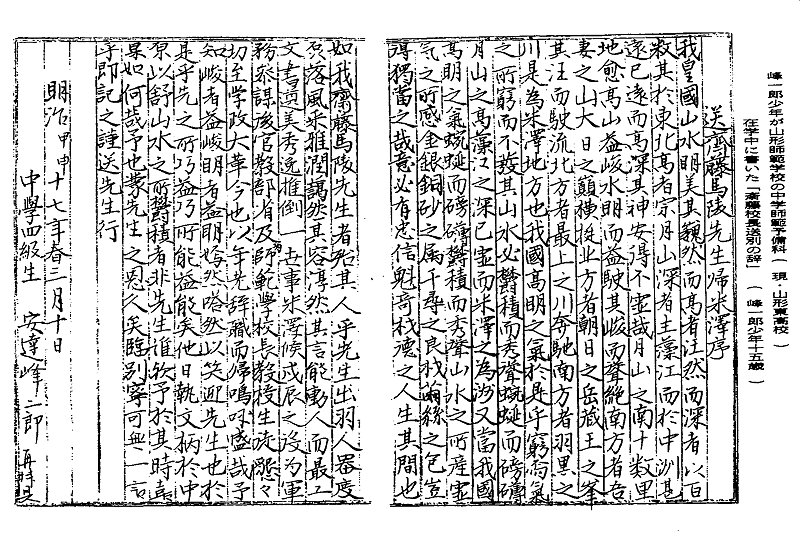 峰一郎少年が山形師範学校の中学師範予備科（現・山形東高校）
在学中に書いた「斎藤校長送別の辞」（峰一郎少年十五歳）
送齋藤馬陵先生歸米澤序
我皇國山水明美其巍然而高者汪然而深者以百
數其於東北高者宗月山深者主藻江而於中
遠已遠而高深其神安得不靈哉月山之南十數里
地愈高山益峻水明而益駛其峻而聳絶南方者吾
妻之山大日之巔横挺北方者朝日之岳藏王之峯
其汪而駛流北方者最上之川奔馳南方者羽黒之
川是為米澤地方也我國高明之氣於是乎窮而氣
之所窮而不發其山水必欝積而秀聳蜿蜒而磅礴
月山之高藻江之深已靈而米澤之為州又當我國
高明之氣蜿蜒而磅礴欝積而秀聳山水之所産靈
氣之所感金銀銅砂之属千尋之良材繭絲之包豈
得獨當之哉意必有忠信魁奇材德之人生其間也
如我齋藤馬陵先生者殆其人乎先生出羽人器度
磊落風采雅潤藹然其容淳然其言能動人而最工
文書遒美秀逸推倒一世事米澤候戊辰之役為軍
務參謀後官教部省及師範學校長教授生徒懇々
切至學政大革今也以年先辞職而歸鳴呼盛哉予
知峻者益峻明者益明嬉然嗒然以笑迎先生也於
是乎先之所巧益巧所能益能矣他日執文柄於中
原以舒山水之所欝積者非先生誰歟予於其時喜
果如何哉予也蒙先生之恩久矣臨別寧可無一言
乎即記之謹送先生行
明治甲申十七年春三月十日
中學四級生　安達峰一郎　再拜